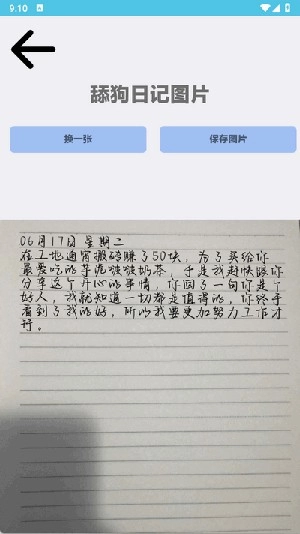 9:10
舔狗日记图片
换一张
保存图片
06月17日 星期二
在工地通宵搬砖赚了50块，为了买给你
最爱吃的芋泥啵啵奶茶，于是我赶快跟你
分享这个开心的事情，你回了一句你是个
好人，我就知道一切都是值得的，你终于
看到了我的好，所以我要更加努力工作才
行。